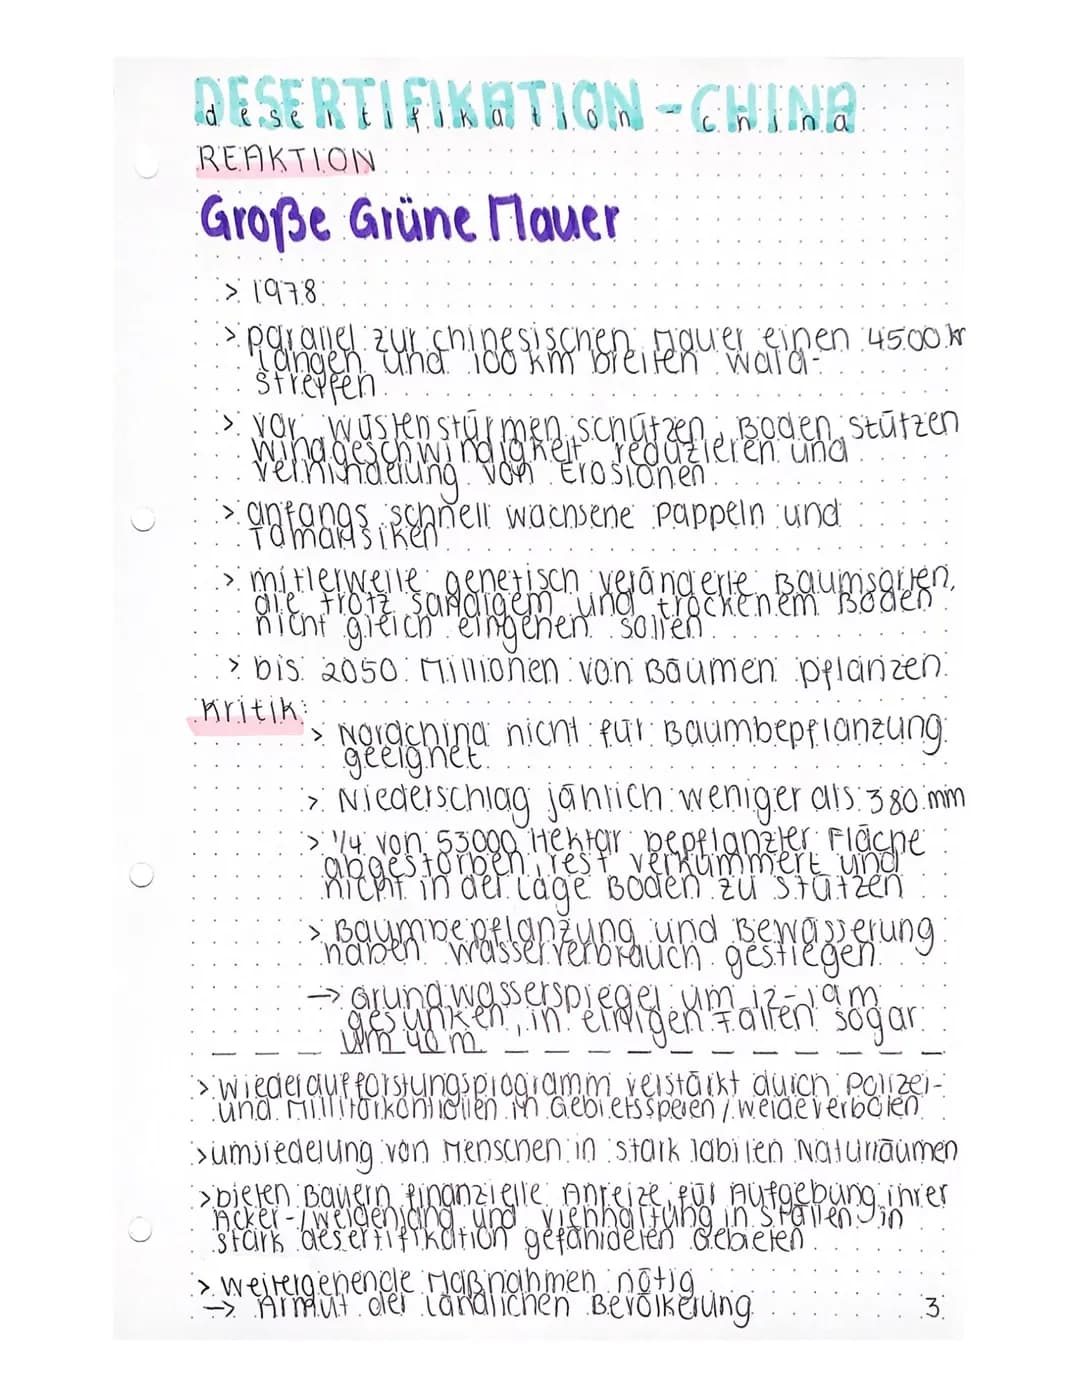 DESERTIFIKATION - CHINA
desertifikation china
REAKTION
Große Grüne Mauer
> 1978
> parallel zur chinesischen Mauer einen 4500 k
langen und 100 km breiten Wald-
streifen
> vor Wüstenstürmen schützen, Boden stützen
Windgeschwindigkeit reduzieren und
verhinderung von Erosionen
> anfangs schnell wachsene Pappeln und
Tamarisiken
> mitlerweile genetisch veränderte Baumsorten,
die trotz sandigem und trockenem Boden
nicht gleich eingehen sollen
> bis 2050 Millionen von Bäumen pflanzen
Kritik:
> Nordchina nicht für Baumbepflanzung
geeignet
> Niederschlag jährlich weniger als 380 mm
> 1/4 von 53000 Hektar bepflanzter Fläche
abgestorben, rest verkümmert und
nicht in der Lage Boden zu stützen
> Baumbepflanzung und Bewässerung
haben Wasserverbrauch gestiegen
→ Grundwasserspiegel um 12-19m
gesunken, in einigen Fällen sogar
um 40 m
> wiederaufforstungsprogramm verstärkt durch Polizei-
und Millitärkontrollen in Gebietssperen / weideverboten
> umsiedelung von Menschen in stark labilen Naturräumen
> bieten Bauern finanzielle Anreize für Aufgebung ihrer
Acker-/weidenland und viehhaltung in Ställen in
stark desertifikation gefährdeten Gebieten
> weitergehende Maßnahmen nötig
→ Armut der ländlichen Bevölkerung
3